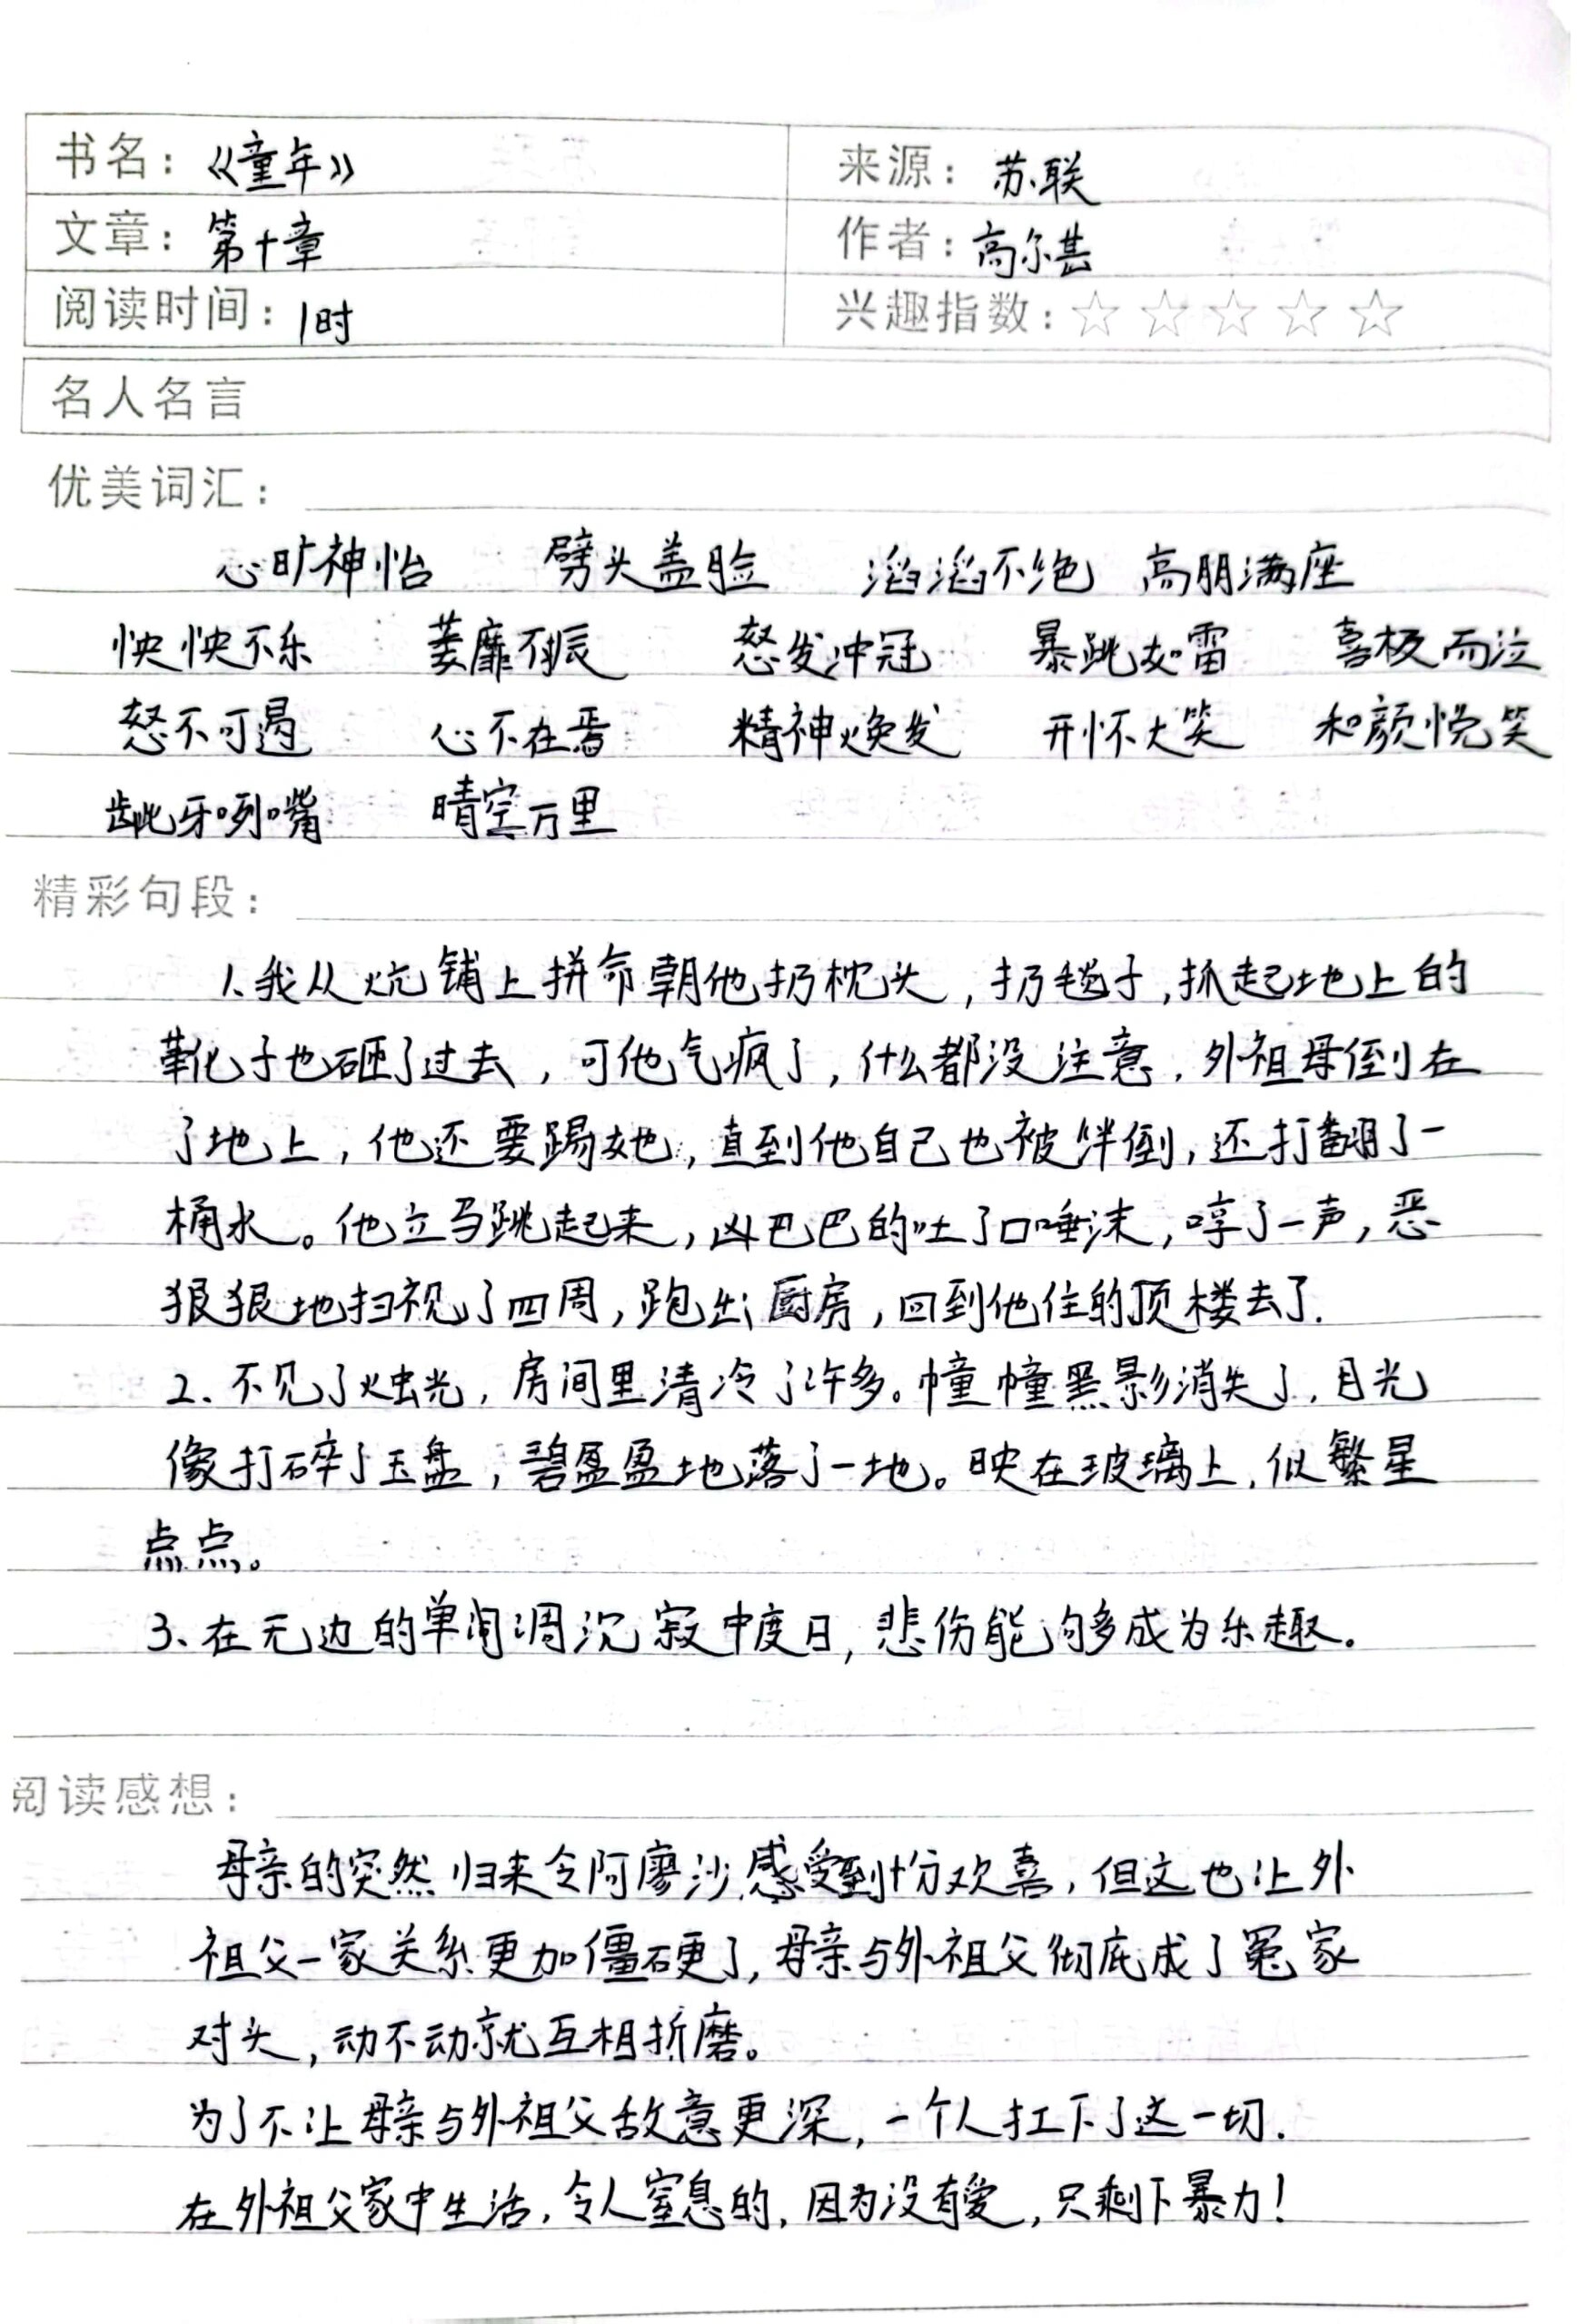 书名：《童年》 来源：苏联
文章：第十章 作者：高尔基
阅读时间：1时 兴趣指数：☆☆☆☆☆
名人名言
优美词汇：
心旷神怡 劈头盖脸 滔滔不绝 高朋满座
怏怏不乐 萎靡不振 怒发冲冠 暴跳如雷 喜极而泣
怒不可遏 心不在焉 精神焕发 开怀大笑 和颜悦笑
龇牙咧嘴 晴空万里
精彩句段：
1、我从炕铺上拼命朝他扔枕头，扔毯子，抓起地上的
靴子也砸了过去，可他气疯了，什么都没注意，外祖母倒在
了地上，他还要踢她，直到他自己也被绊倒，还打翻了一
桶水。他立马跳起来，凶巴巴的吐了口唾沫，哼了一声，恶
狠狠地扫视了四周，跑出厨房，回到他住的顶楼去了.
2、不见了烛光，房间里清冷了许多。幢幢黑影消失了，月光
像打碎了玉盘，碧盈盈地落了一地。映在玻璃上，似繁星
点点。
3、在无边的单调沉寂中度日，悲伤能够成为乐趣。
阅读感想：
母亲的突然归来令阿廖沙感受到十分欢喜，但这也让外
祖父一家关系更加僵硬了，母亲与外祖父彻底成了冤家
对头，动不动就互相折磨。
为了不让母亲与外祖父敌意更深，一个人扛下了这一切.
在外祖父家中生活，令人窒息的，因为没有爱，只剩下暴力！